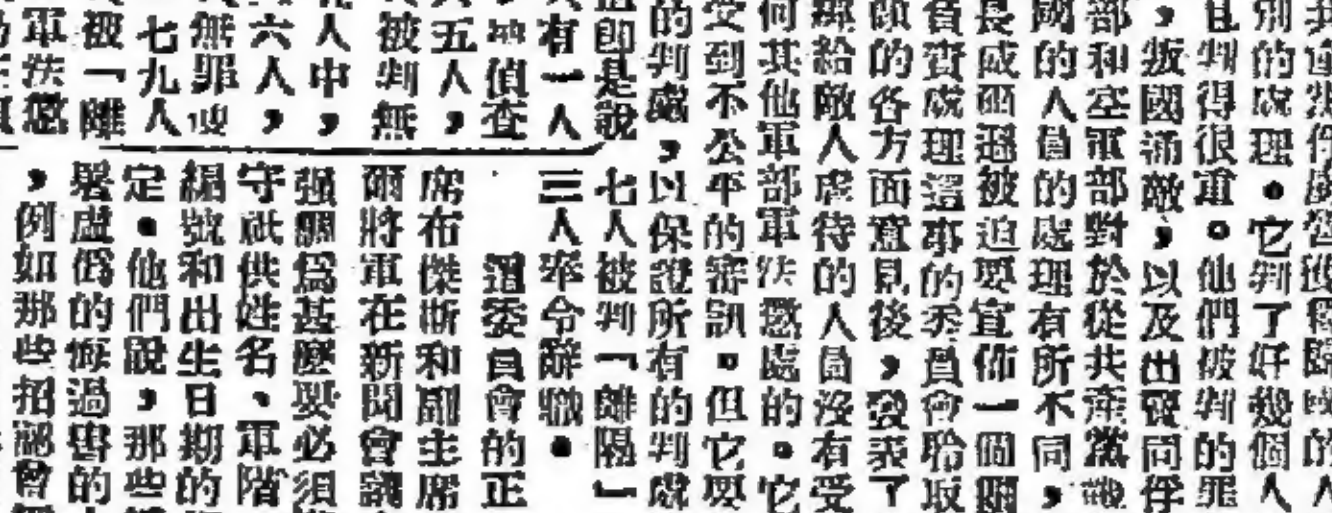 別的處理。它判了好幾個人
且判得很重。他們被判的罪
，叛國通敵，以及出賣同俘
部和空軍部對於從共產黨戰
國的人員的處理有所不同，
長威爾遜被迫要宣佈一個關
負責處理這事的委員會聆取
的各方面意見後，發表了
給敵人虐待的人員沒有受
何其他軍部軍法懲處的。它
受到不公平的審訊。但它要
的判處，以保證所有的判處
即是說
有一人
偵查
五人，
被判無
人中，
六人，
無罪
七九人
被「離
軍法懲
七人被判「離隔」
三人奉令辭職。
這委員會的正
席布傑斯和副主席
爾將軍在新聞會議
强調爲甚麼要必須
守祇供姓名、軍階
編號和出生日期的
定。他們說，那些
署虛偽的悔過書的
，例如那些招認會